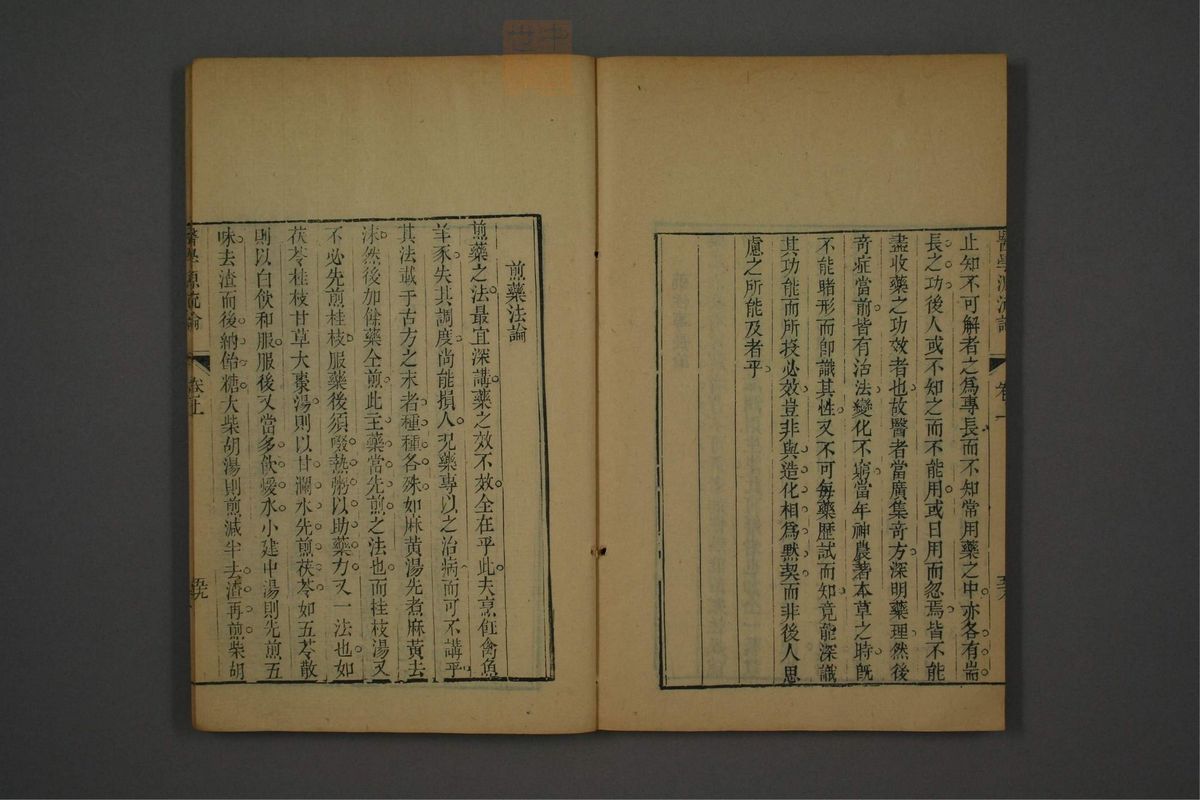 止知不可解者之爲專長而不知常用藥之中亦各有耑
長之功後人或不知之而不能用或日用而忽焉皆不能
盡收藥之功效者也故醫者當廣集奇方深明藥理然後
奇症當前皆有治法變化不窮當年神農著本草之時旣
不能睹形而卽識其性又不可每藥歷試而知竟能深識
其功能而所投必效豈非與造化相爲默契而非後人思
慮之所能及者乎
煎藥法論
煎藥之法最宜深講藥之效不效全在乎此夫烹飪禽魚
羊豕失其調度尚能損人况藥專以之治病而可不講乎
其法載于古方之末者種種各殊如麻黃湯先煮麻黃去
沫然後加餘藥仝煎此主藥當先煎之法也而桂枝湯又
不必先煎桂枝服藥後須啜熱粥以助藥力又一法也如
茯苓桂枝甘草大棗湯則以甘瀾水先煎茯苓如五苓散
則以白飲和服服後又當多飲煖水小建中湯則先煎五
味去渣而後納飴糖大柴胡湯則煎減半去渣再煎柴胡
醫學源流論 卷上